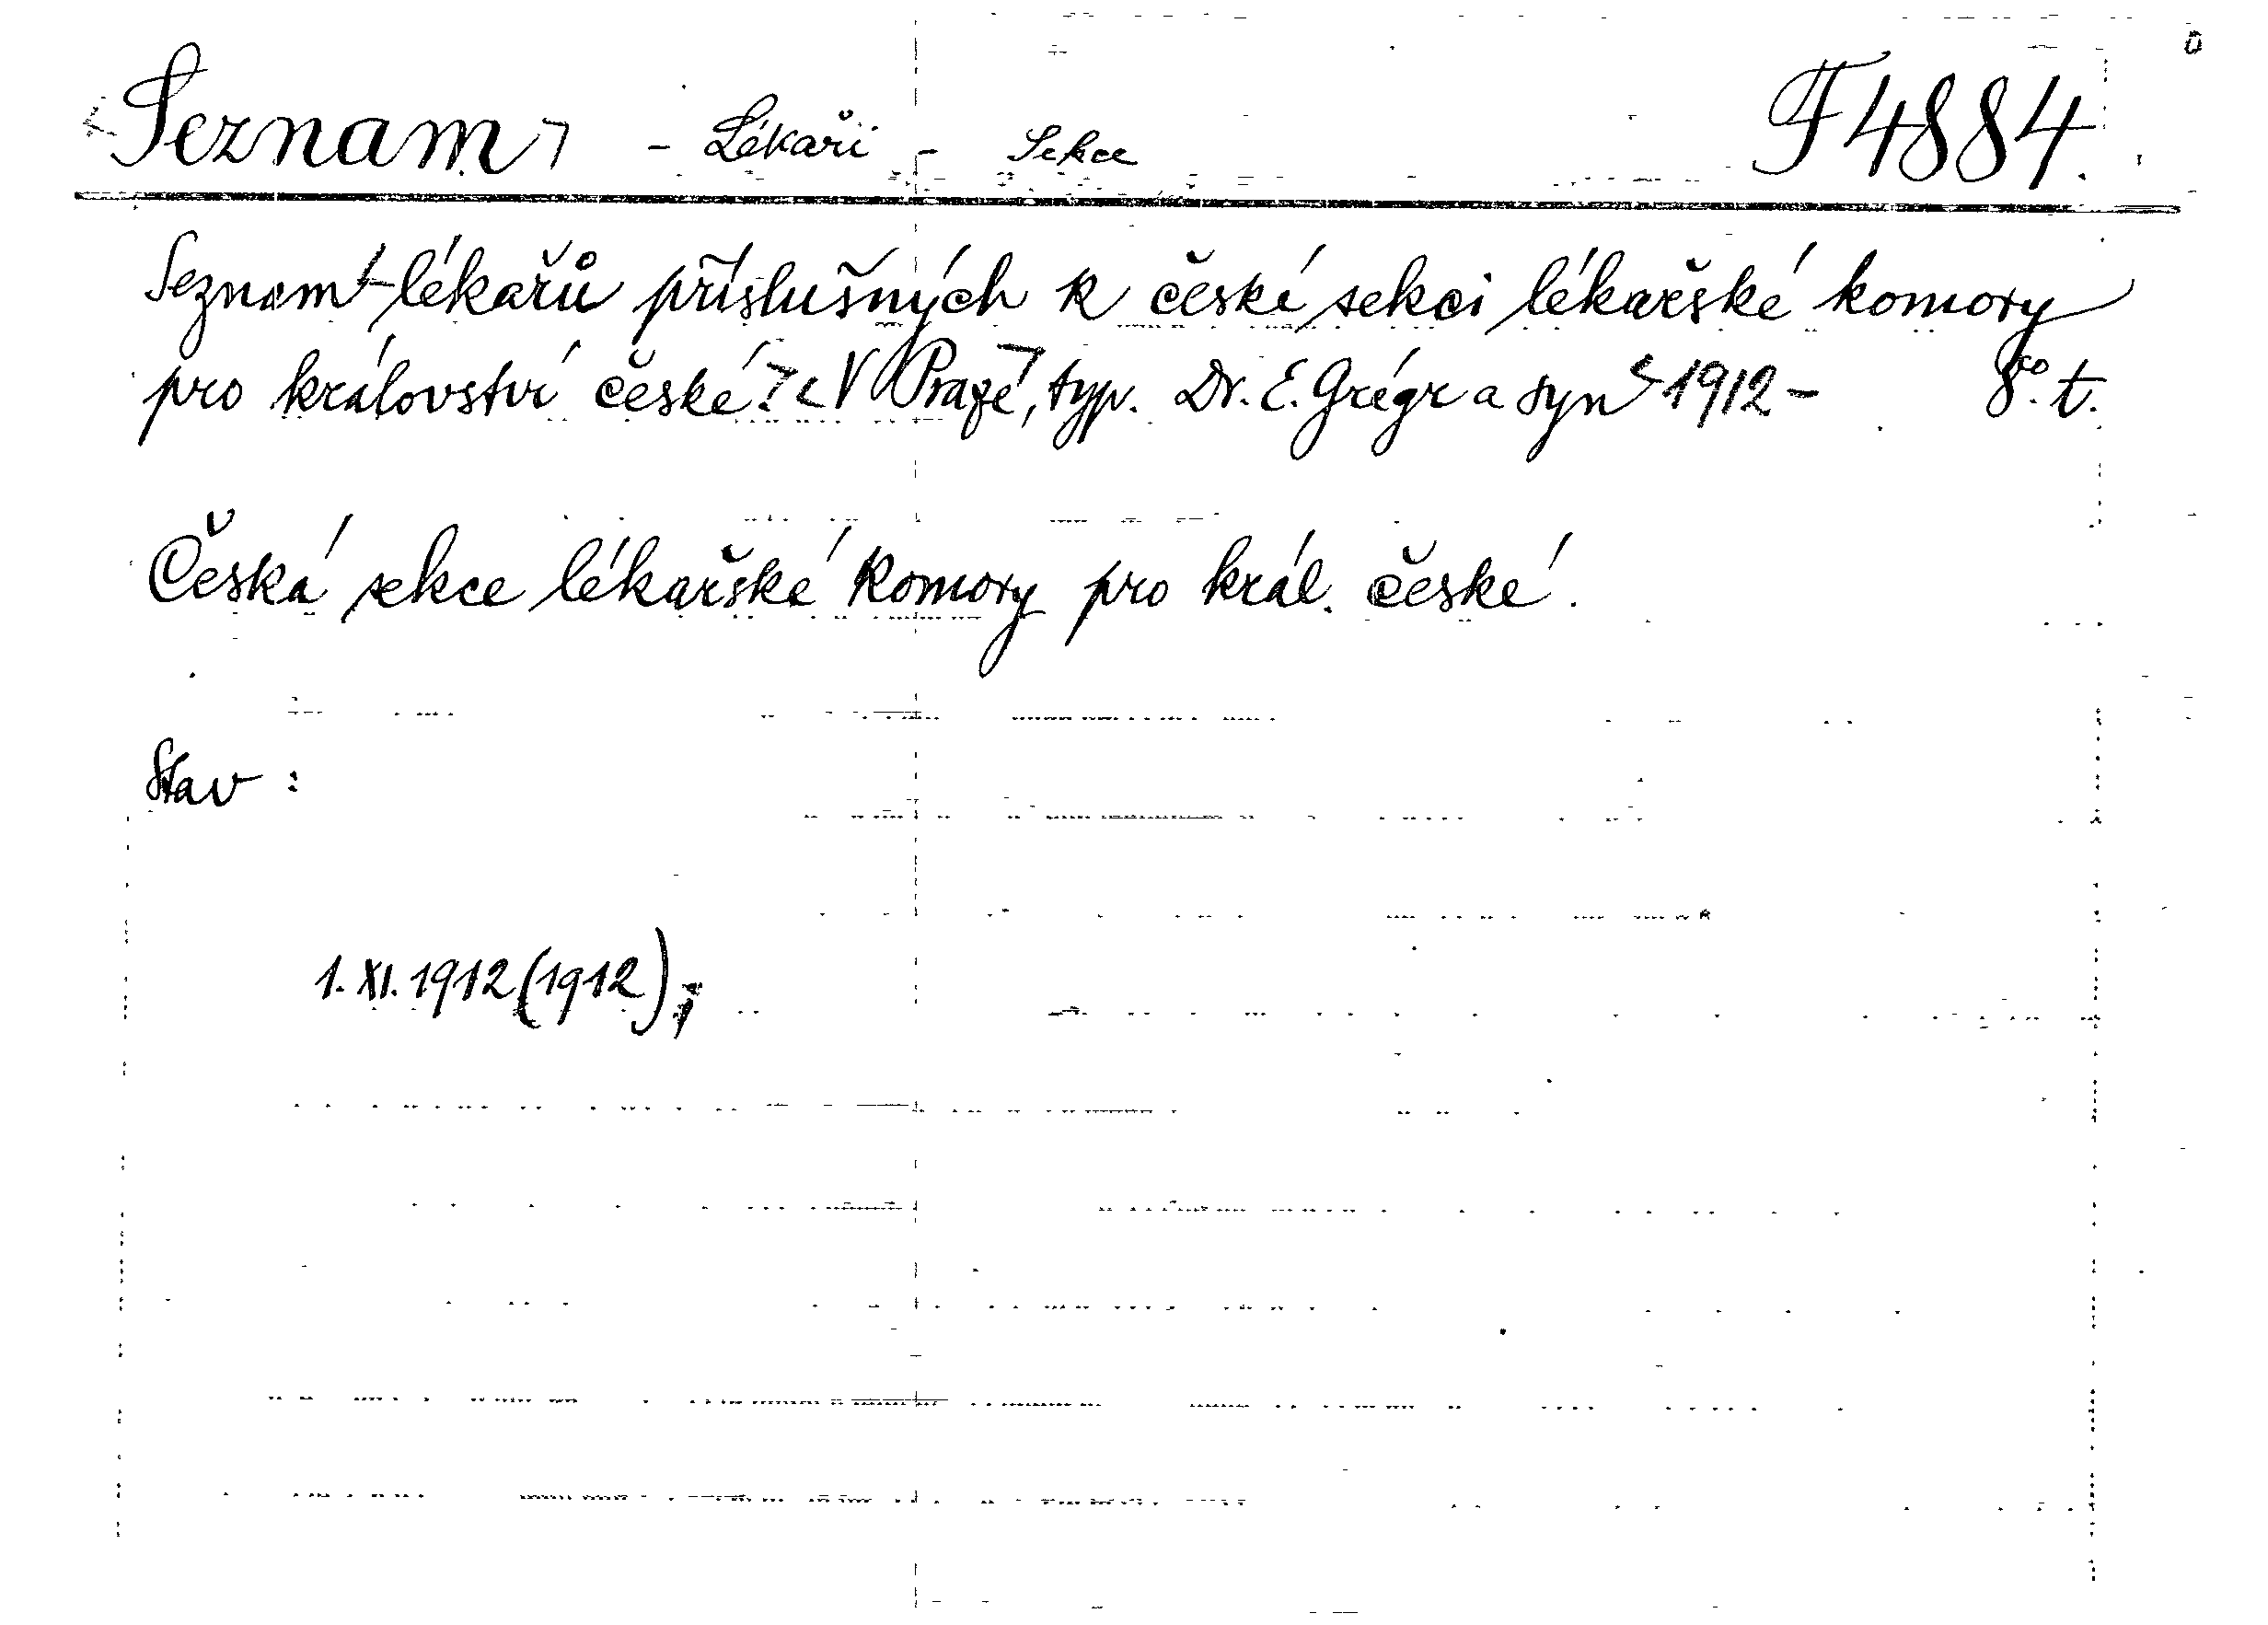 Seznam - Lékaři - Sekce F 4884.
Seznam lékařů příslušných k české sekci lékařské komory
pro království české. V Praze, typ. Dr. E. Grégr a syn 1912 - 8°. t.
Česká sekce lékařské komory pro král. české.
Stav :
1. XI. 1912 (1912);